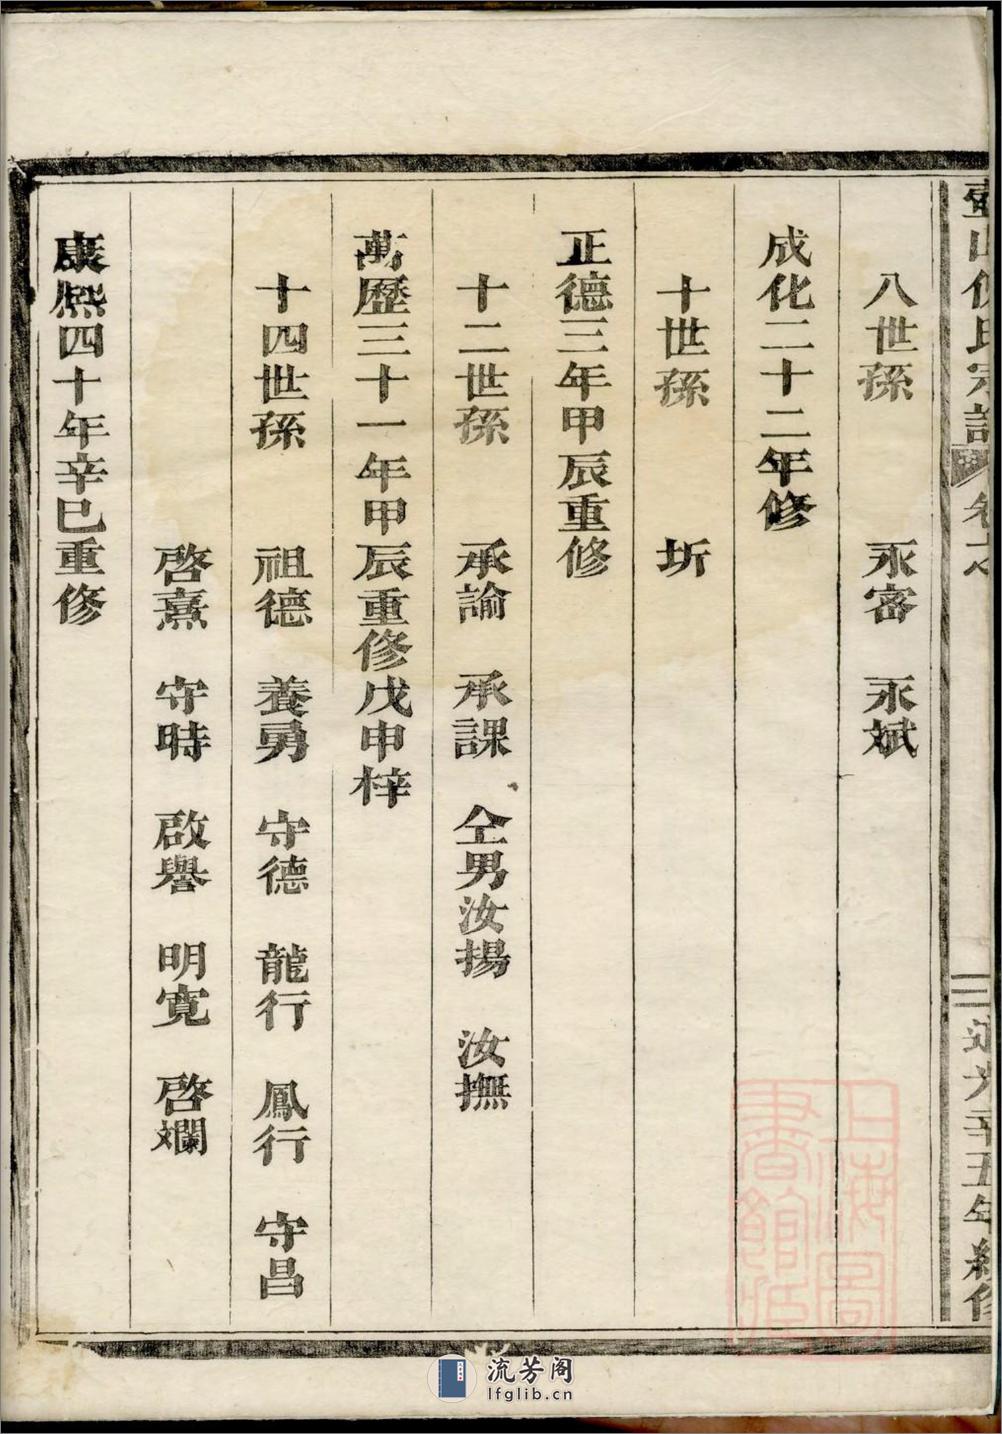 八世孫 永審 永斌
成化二十二年修
十世孫 圻
正德三年甲辰重修
十二世孫 承諭 承課 仝男汝揚 汝撫
萬歷三十一年甲辰重修戊申梓
十四世孫 祖德 養勇 守德 龍行 鳳行 守昌
啓熹 守時 啟譽 明寬 啓斕
康熙四十年辛巳重修
上海圖書館藏
流芳阁
lfglib.cn